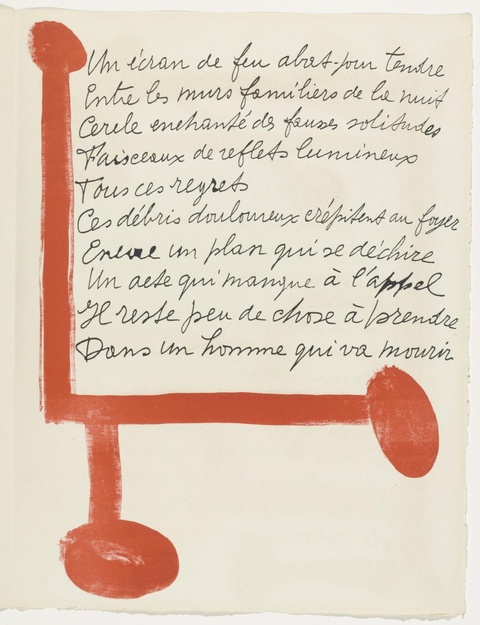 Un écran de feu abat-jour tendre
Entre les murs familiers de la nuit
Cercle enchanté des fausses solitudes
Faisceaux de reflets lumineux
Tous ces regrets
Ces débris douloureux crépitent au foyer
Encore un plan qui se déchire
Un acte qui manque à l'appel
Il reste peu de chose à prendre
Dans un homme qui va mourir